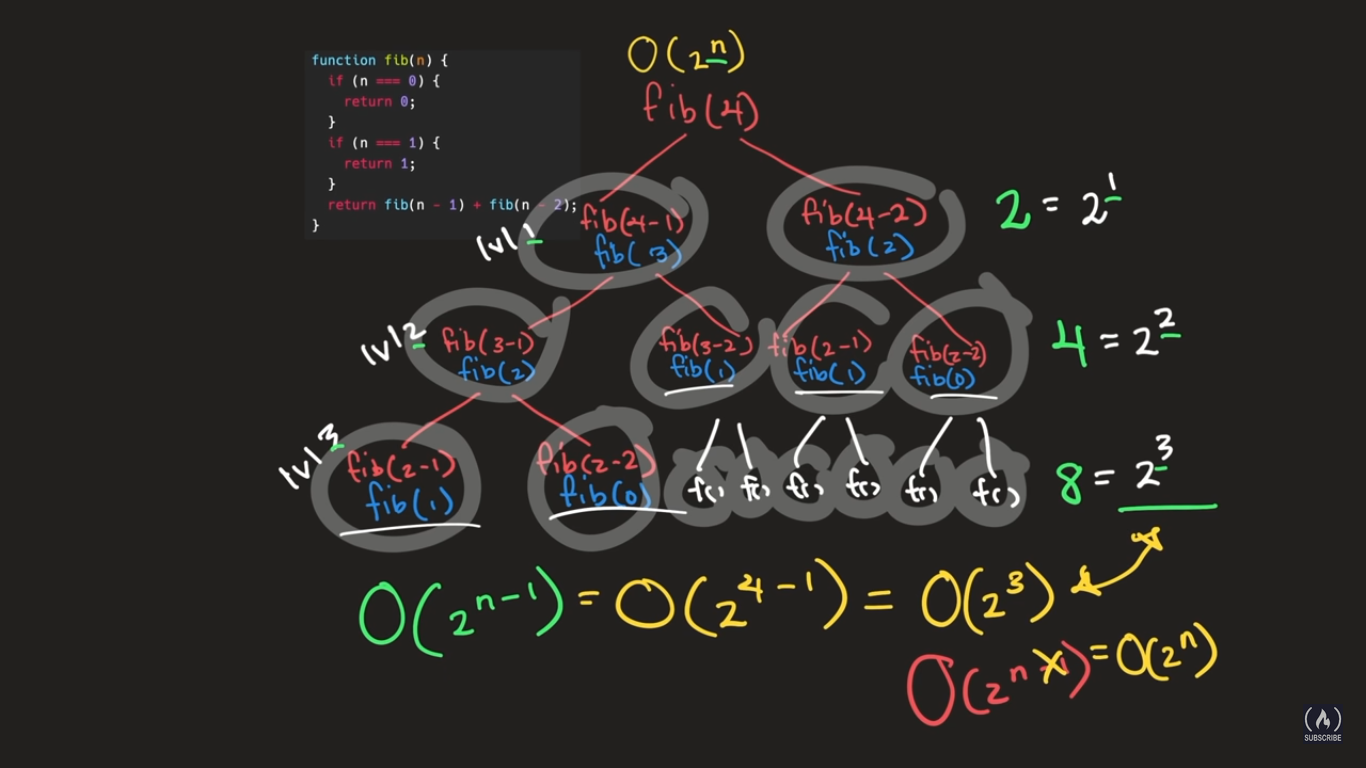 function fib(n) {
if (n === 0) {
return 0;
}
if (n === 1) {
return 1;
}
return fib(n - 1) + fib(n - 2);
}
O(2^n)
fib(4)
lvl 1
fib(4-1)
fib(3)
fib(4-2)
fib(2)
2 = 2^1
lvl 2
fib(3-1)
fib(2)
fib(3-2)
fib(1)
fib(2-1)
fib(1)
fib(2-2)
fib(0)
4 = 2^2
lvl 3
fib(2-1)
fib(1)
fib(2-2)
fib(0)
f() f() f() f() f() f()
8 = 2^3
O(2^n-1) = O(2^4-1) = O(2^3)
O(2^n-1) = O(2^n)
SUBSCRIBE